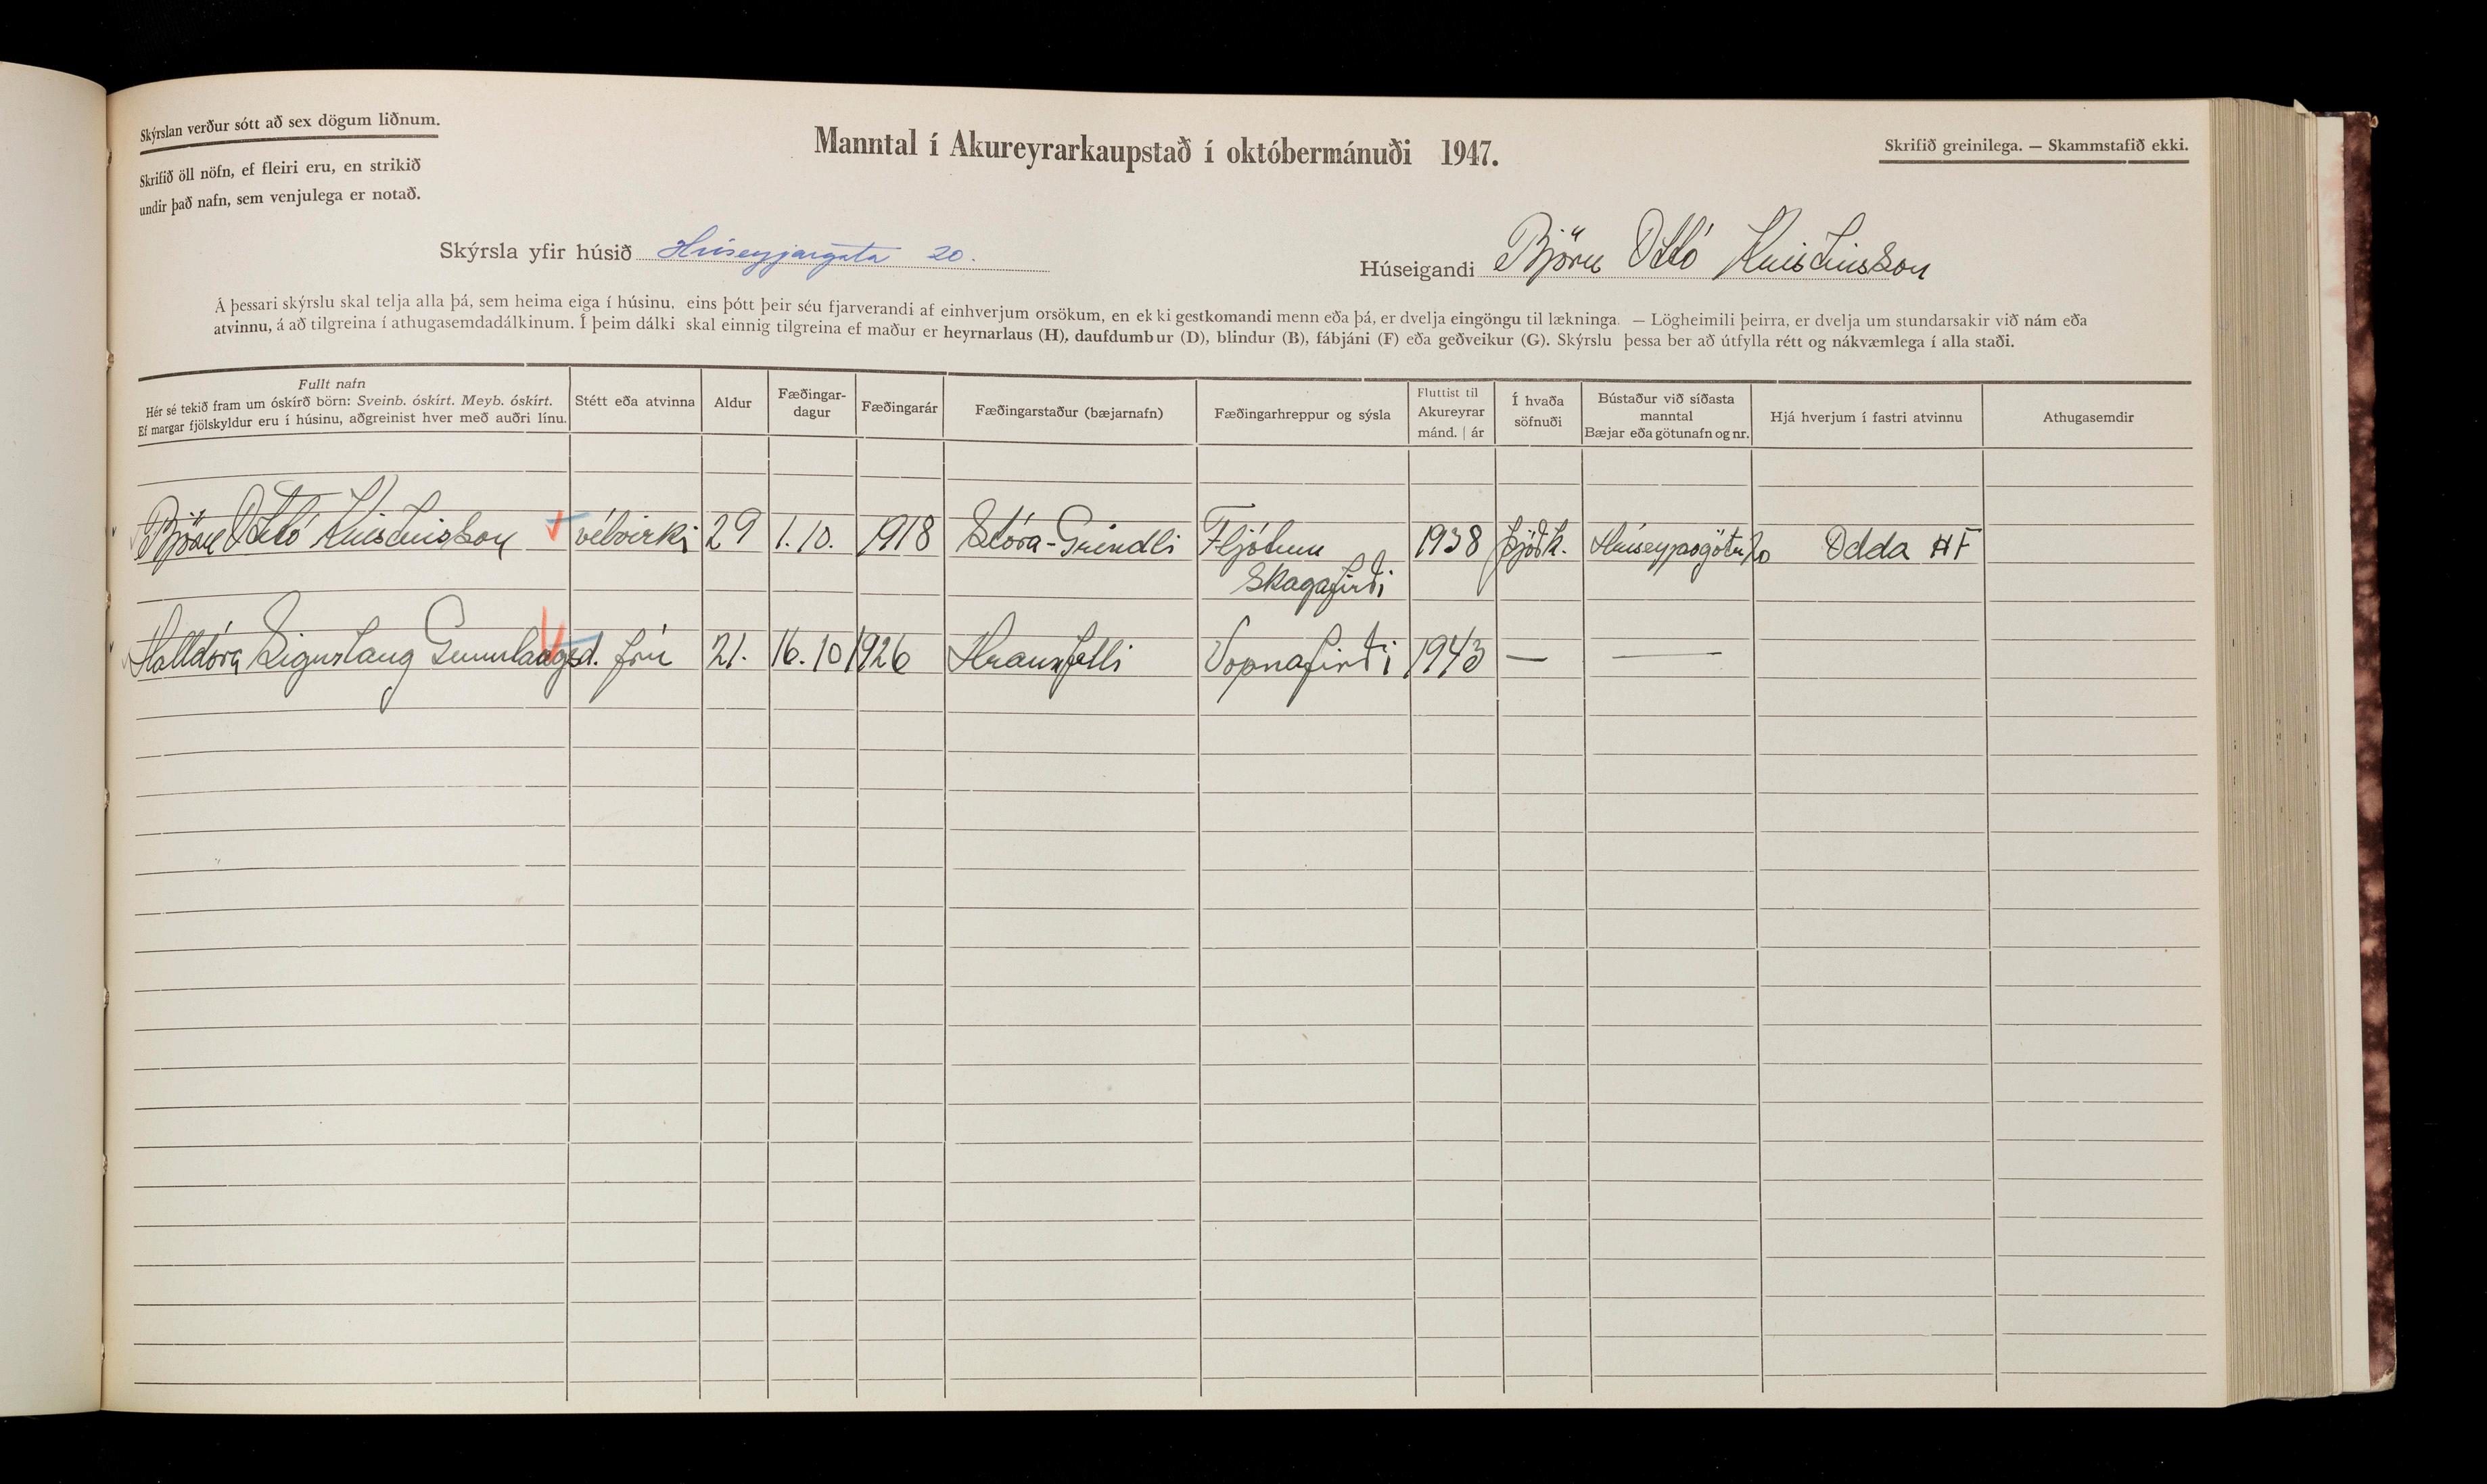 Skýrslan verður sótt að sex dögum liðnum.
Skrifið öll nöfn, ef fleiri eru, en strikið
undir það nafn, sem venjulega er notað.
Manntal í Akureyrarkaupstað í októbermánuði 1947.
Skrifið greinilega. — Skammstafið ekki.
Skýrsla yfir húsið Hríseyjargata 20.
Húseigandi Björn Ottó Kristinsson
Á þessari skýrslu skal telja alla þá, sem heima eiga í húsinu, eins þótt þeir séu fjarverandi af einhverjum orsökum, en ekki gestkomandi menn eða þá, er dvelja eingöngu til lækninga. — Lögheimili þeirra, er dvelja um stundarsakir við nám eða
atvinnu, á að tilgreina í athugasemdadálkinum. Í þeim dálki skal einnig tilgreina ef maður er heyrnarlaus (H), daufdumbur (D), blindur (B), fábjáni (F) eða geðveikur (G). Skýrslu þessa ber að útfylla rétt og nákvæmlega í alla staði.
Fullt nafn
Hér sé tekið fram um óskírð börn: Sveinb. óskírt. Meyb. óskírt.
Ef margar fjölskyldur eru í húsinu, aðgreinist hver með auðri línu.
Stétt eða atvinna
Aldur
Fæðingar-
dagur
Fæðingarár
Fæðingarstaður (bæjarnafn)
Fæðingarhreppur og sýsla
Fluttist til
Akureyrar
mánd. | ár
Í hvaða
söfnuði
Bústaður við síðasta
manntal
Bæjar eða götunafn og nr.
Hjá hverjum í fastri atvinnu
Athugasemdir
Björn Ottó Kristinsson vélvirki 29 1.10. 1918 Stóra-Grindli Fljótum 1938 þjóðk. Hríseyjargötu 20 Odda HF
Skagafirði
Halldóra Sigurlaug Gunnlaugsd. frú 21. 16.10 1926 Hraunfelli Vopnafirði 1943 — —